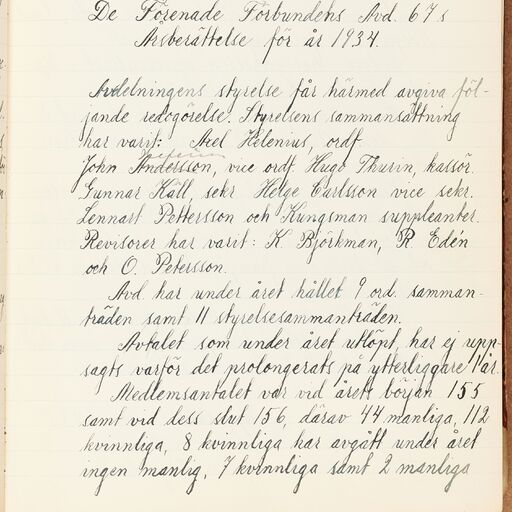 De Förenade Förbundens Avd. 67s
Årsberättelse för år 1934.
Avdelningens styrelse får härmed avgiva föl-
jande redogörelse. Styrelsens sammansättning
har varit: Axel Helenius, ordf.
John Anderssson, vice ordf. Hugo Thurin, kassör.
Gunnar Häll, sekr. Helge Carlsson vice sekr.
Lennart Pettersson och Kungsman suppleanter.
Revisorer har varit: K. Björkman, R. Edén
och O. Petersson.
Avd har under året hållet 9 ord. samman-
träden samt 11 styrelsesammanträden.
Avtalet som under året utlöpt, har ej upp-
sagts varför det prolongerats på ytterliggare 1 år.
Medlemsantalet var vid årets början 155
samt vid dess slut 156, därav 44 manliga, 112
kvinnliga, 8 kvinnliga har avgått under året
ingen manlig, 7 kvinnliga samt 2 manliga